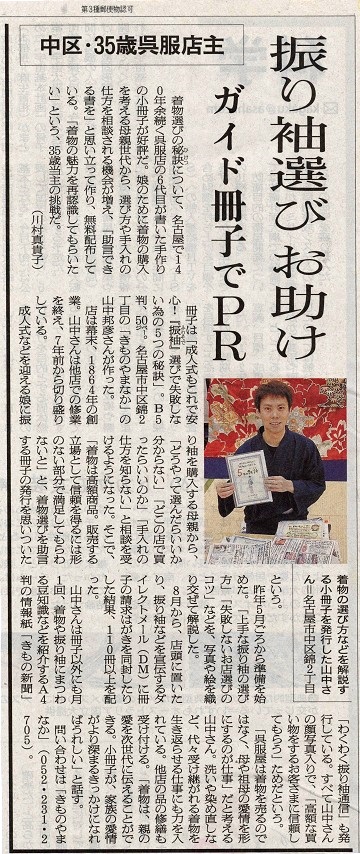 第3種郵便物認可
中区・35歳呉服店主
振り袖選びお助け
ガイド冊子でPR
着物選びの秘訣について、名古屋で14
0年余続く呉服店の6代目が書いた手作り
の小冊子が好評だ。娘のために着物の購入
を考える母親世代から、選び方や手入れの
仕方を相談される機会が増え、「助言でき
る書を」と思い立って作り、無料配布して
いる。「着物の魅力を再認識してもらいた
い」という、35歳当主の挑戦だ。
（川村真貴子）
冊子は「成人式もこれで安
心！『振袖』選びで失敗しな
い為の5つの秘訣」。B5
判、50㌻。名古屋市中区錦2
丁目の「きものやまなか」の
山中邦彦さんが作った。
店は幕末、1864年の創
業。山中さんは他店での修業
を終え、7年前から切り盛り
している。
成人式などを迎える娘に振
り袖を購入する母親から、
「どうやって選んだらいいか
分からない」「どこの店で買
ったらいいのか」「手入れの
仕方を知らない」と相談を受
けるようになった。そこで、
「着物は高額商品。販売する
立場として信頼を得るには形
のない部分で満足してもらわ
ないと」と、着物選びを助言
する冊子の発行を思いついた
という。
昨年5月ごろから準備を始
めた。「上手な振り袖の選び
方」「失敗しないお店選びの
コツ」などを、写真や絵を織
り交ぜて解説した。
8月から、店頭に置いた
り、振り袖などを宣伝するダ
イレクトメール（DM）に冊
子の請求はがきを同封したり
した結果、110冊以上を配
った。
山中さんは冊子以外にも月
1回、着物や振り袖にまつわ
る豆知識などを紹介するA4
判の情報紙「きもの新聞」
「わくわく振り袖通信」も発
行している。すべて山中さん
の顔写真入りで、「高額な買
い物をするお客さまに信頼し
てもらう」ためだという。
「呉服屋は着物を売るので
はなく、母や祖母の愛情を形
にするのが仕事」だと考える
山中さん。洗いや染め直しな
ど、代々受け継がれる着物を
生き返らせる仕事にも力を入
れている。他店の品の修繕も
受け付ける。「着物は、親の
愛を次世代に伝えることがで
きる。小冊子が、家族の愛情
がより深まるきっかけになれ
ばうれしい」と話す。
問い合わせは「きものやま
なか」（052・231・2
705）。
着物の選び方などを解説す
る小冊子を発行した山中さ
ん＝名古屋市中区錦2丁目